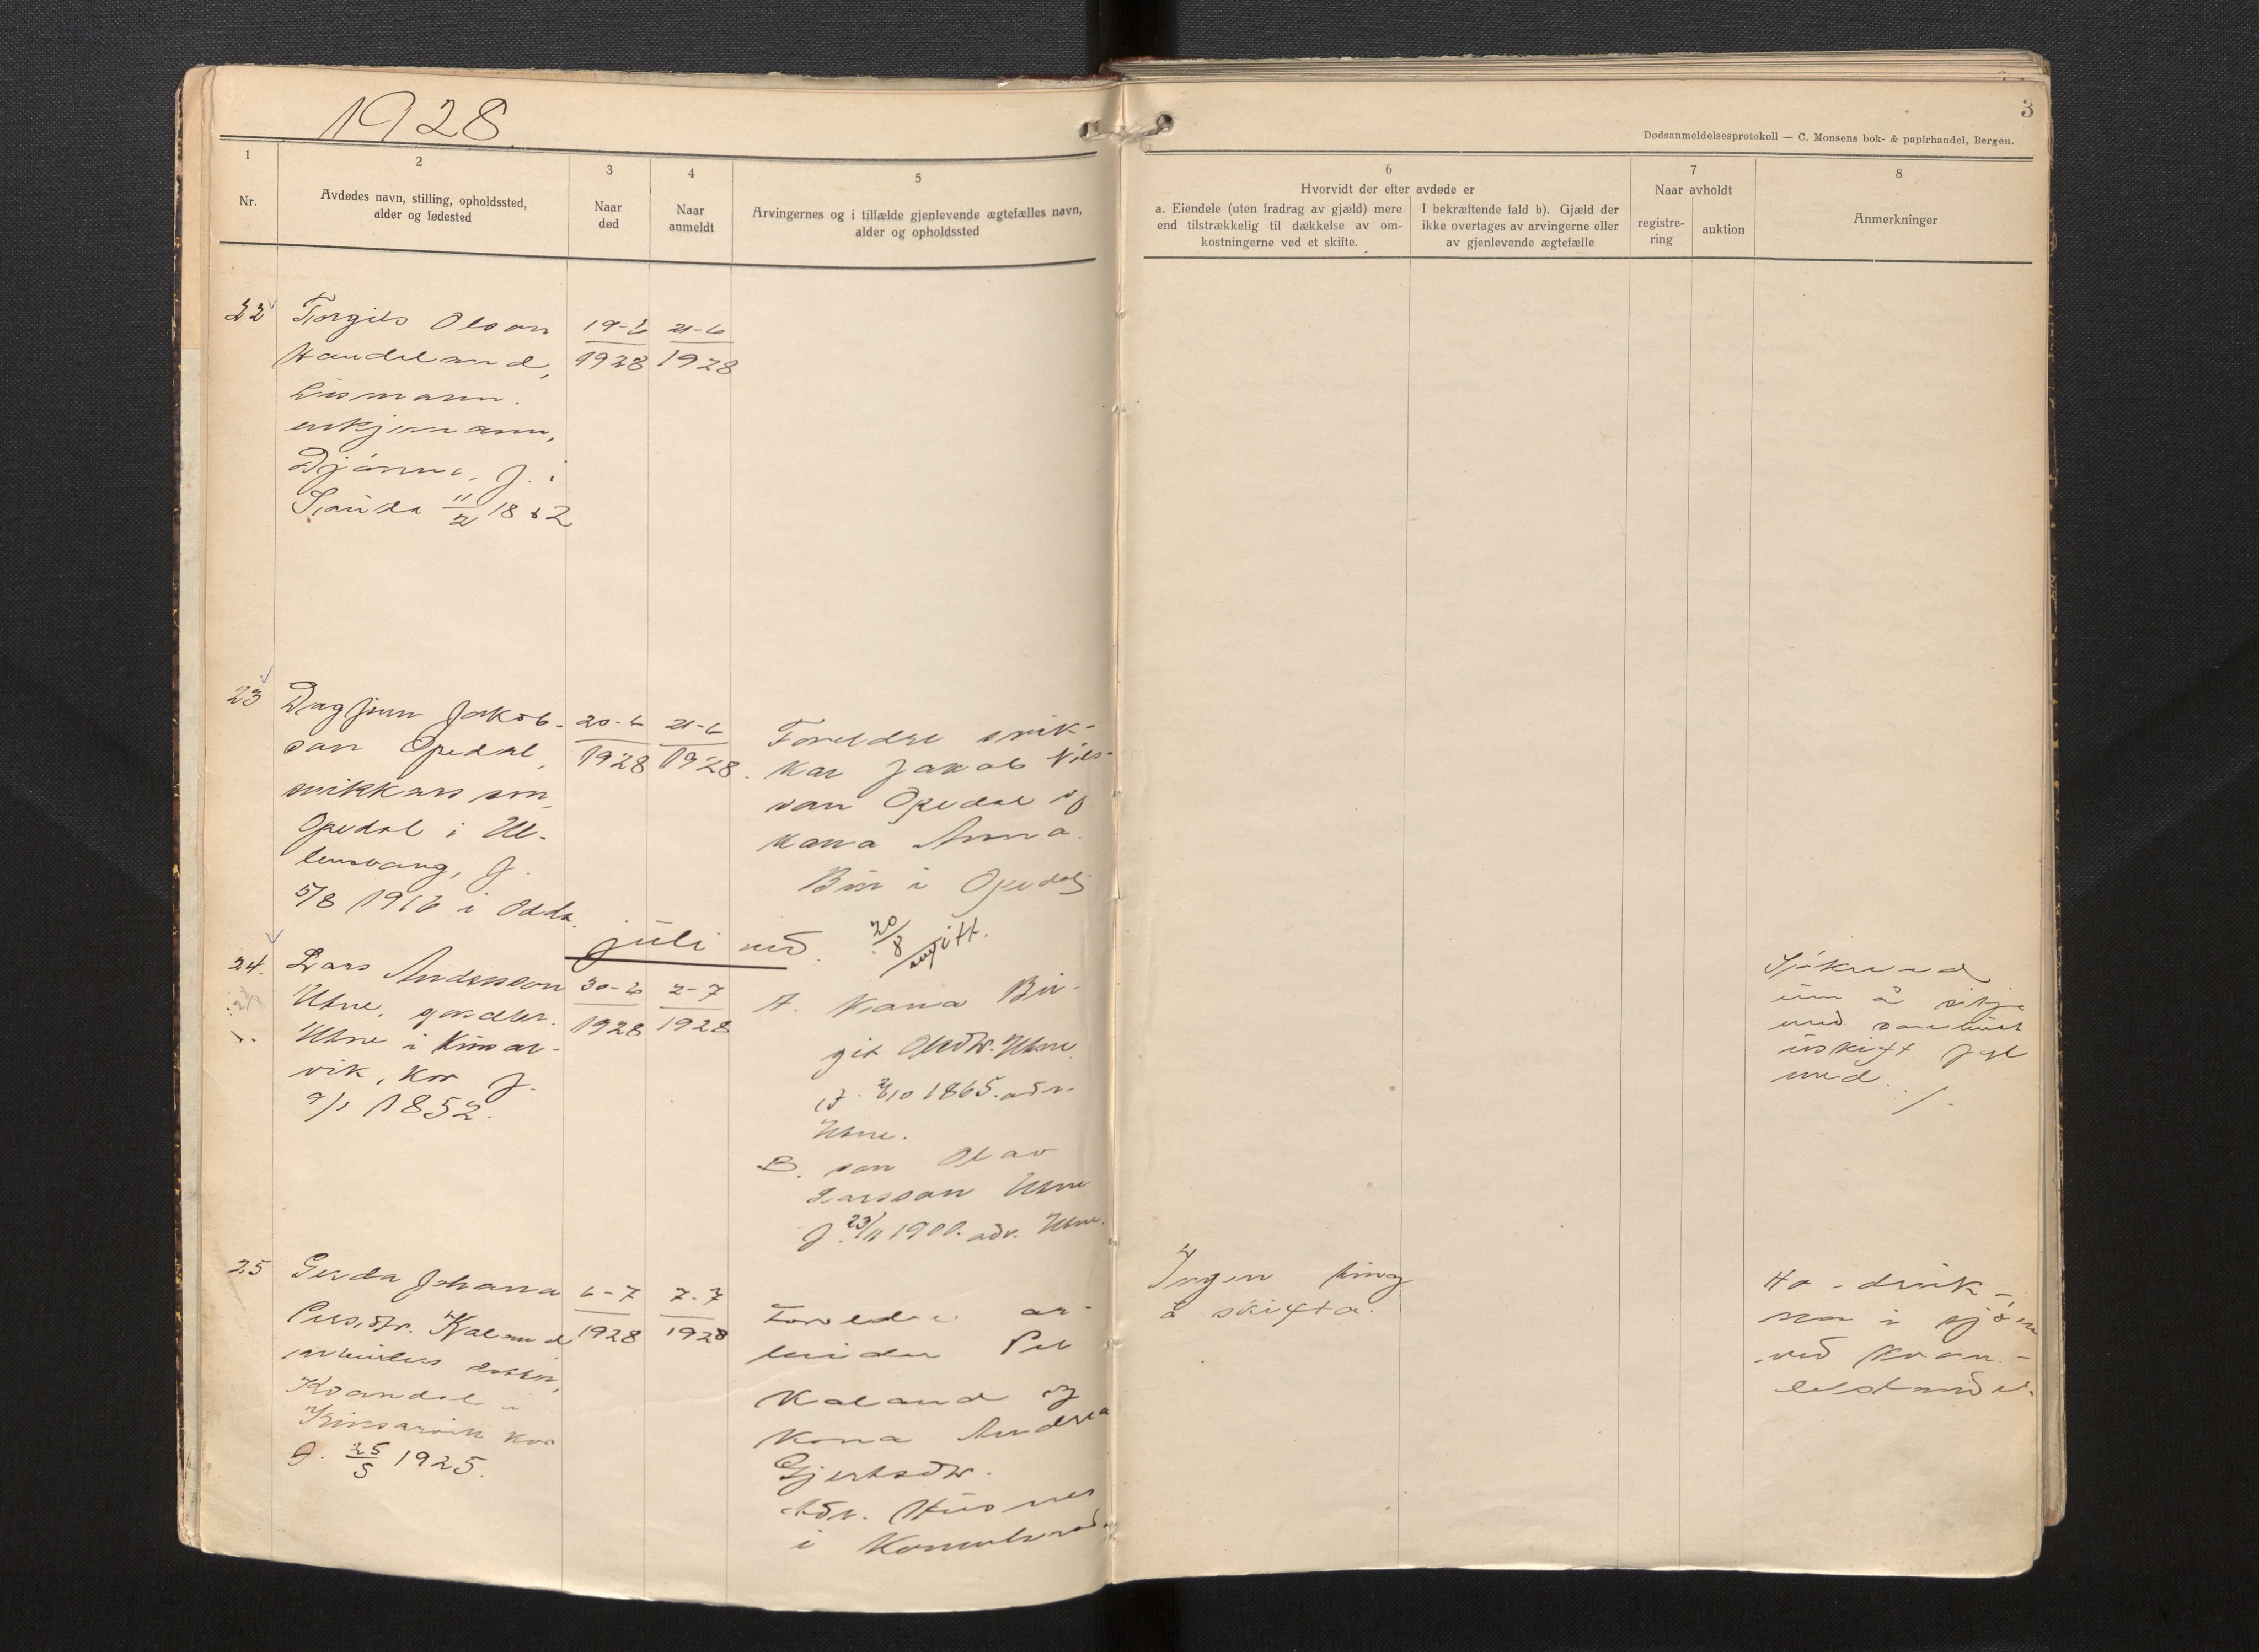 1928.
3
Dødsanmeldelsesprotokoll — C. Monsens bok- & papirhandel, Bergen.
1
Nr.
2
Avdødes navn, stilling, opholdssted,
alder og fødested
3
Naar
død
4
Naar
anmeldt
5
Arvingernes og i tilfælde gjenlevende ægtefælles navn,
alder og opholdssted
6
Hvorvidt der efter avdøde er
a. Eiendele (uten fradrag av gjæld) mere
end tilstrækkelig til dækkelse av om-
kostningerne ved et skifte.
I bekræftende fald b). Gjæld der
ikke overtages av arvingerne eller
av gjenlevende ægtefælle
7
Naar avholdt
registre-
ring
auktion
8
Anmerkninger
22
Torgils Olson
Handeland,
enkjemann,
f. i
11/2
19-6
1928
21-6
1928
23
Dagfinn Jakob-
son Opedal,
snikkars son,
Opedal i Ul-
lensvang, f.
5/8 1916 i Odda.
20-6
1928
21-6
1928.
Foreldre snik-
kar Jakob Nils-
son Opedal og
kona Anna.
Bur i Opedal
juli md.
20/8
24.
Lars Andersson
Utne, gardbr.
Utne i Kinsar-
vik, f.
9/1 1852.
30-6
1928
2-7
1928
A. Kona Bir-
git Olsdtr. Utne
f. 1865. adr.
Utne.
B. son Olav
Larsson Utne
f. 23/11 1900. adr. Utne.
uskift
med.
25
Gerda Johanna
Pedsdtr. Kaland
arbeiders dotter,
Kvandal i
Kinsarvik
f. 25/5 1925.
6-7
1928
7-7
1928
Foreldre ar-
beider
Kaland og
kona Andrea
Gjertsdtr.
Adr. Husnes
i
Ingen ting
å skifta.
Ho drukk-
na i sjøen
ved